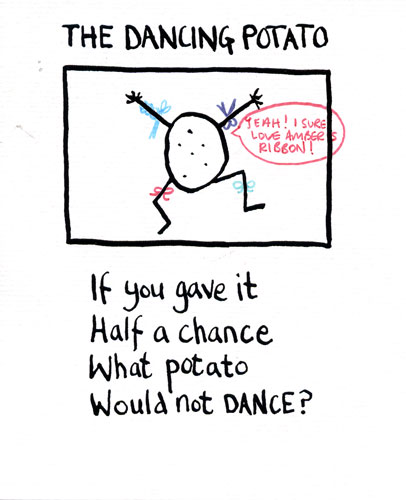 THE DANCING POTATO
YEAH! I SURE
LOVE AMBER'S
RIBBON!
If you gave it
Half a chance
What potato
Would not DANCE?